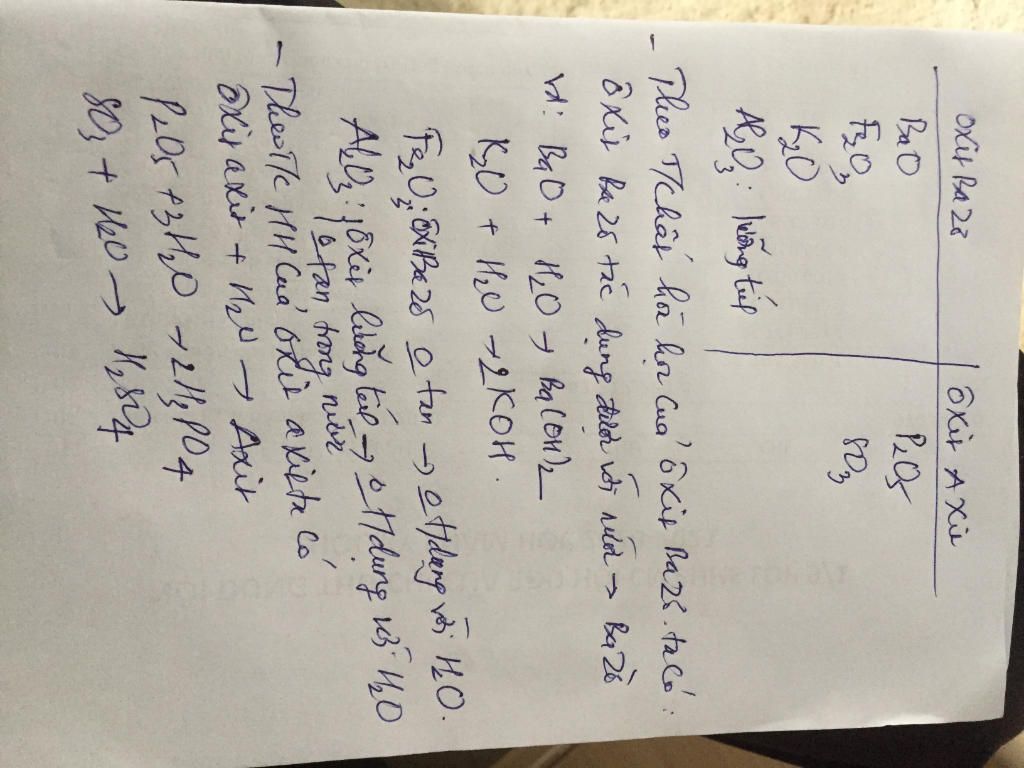 ÔXit Bazơ | Ôxit Axit
BaO P2O5
Fe2O3 SO3
K2O
Al2O3: lưỡng tính
- Theo T/chất hóa học của ôxit Bazơ. ta có:
ôxit Bazơ tác dụng được với nước → Bazơ
vd: BaO + H2O → Ba(OH)2
K2O + H2O → 2KOH.
Fe2O3: ôxit Bazơ o tan → o t/dụng với H2O.
Al2O3: ôxit lưỡng tính → o t/dụng với H2O
o tan trong nước
- Theo T/c HH của ôxit axit ta có
Ôxit axit + H2O → Axit
P2O5 + 3H2O → 2H3PO4
SO3 + H2O → H2SO4